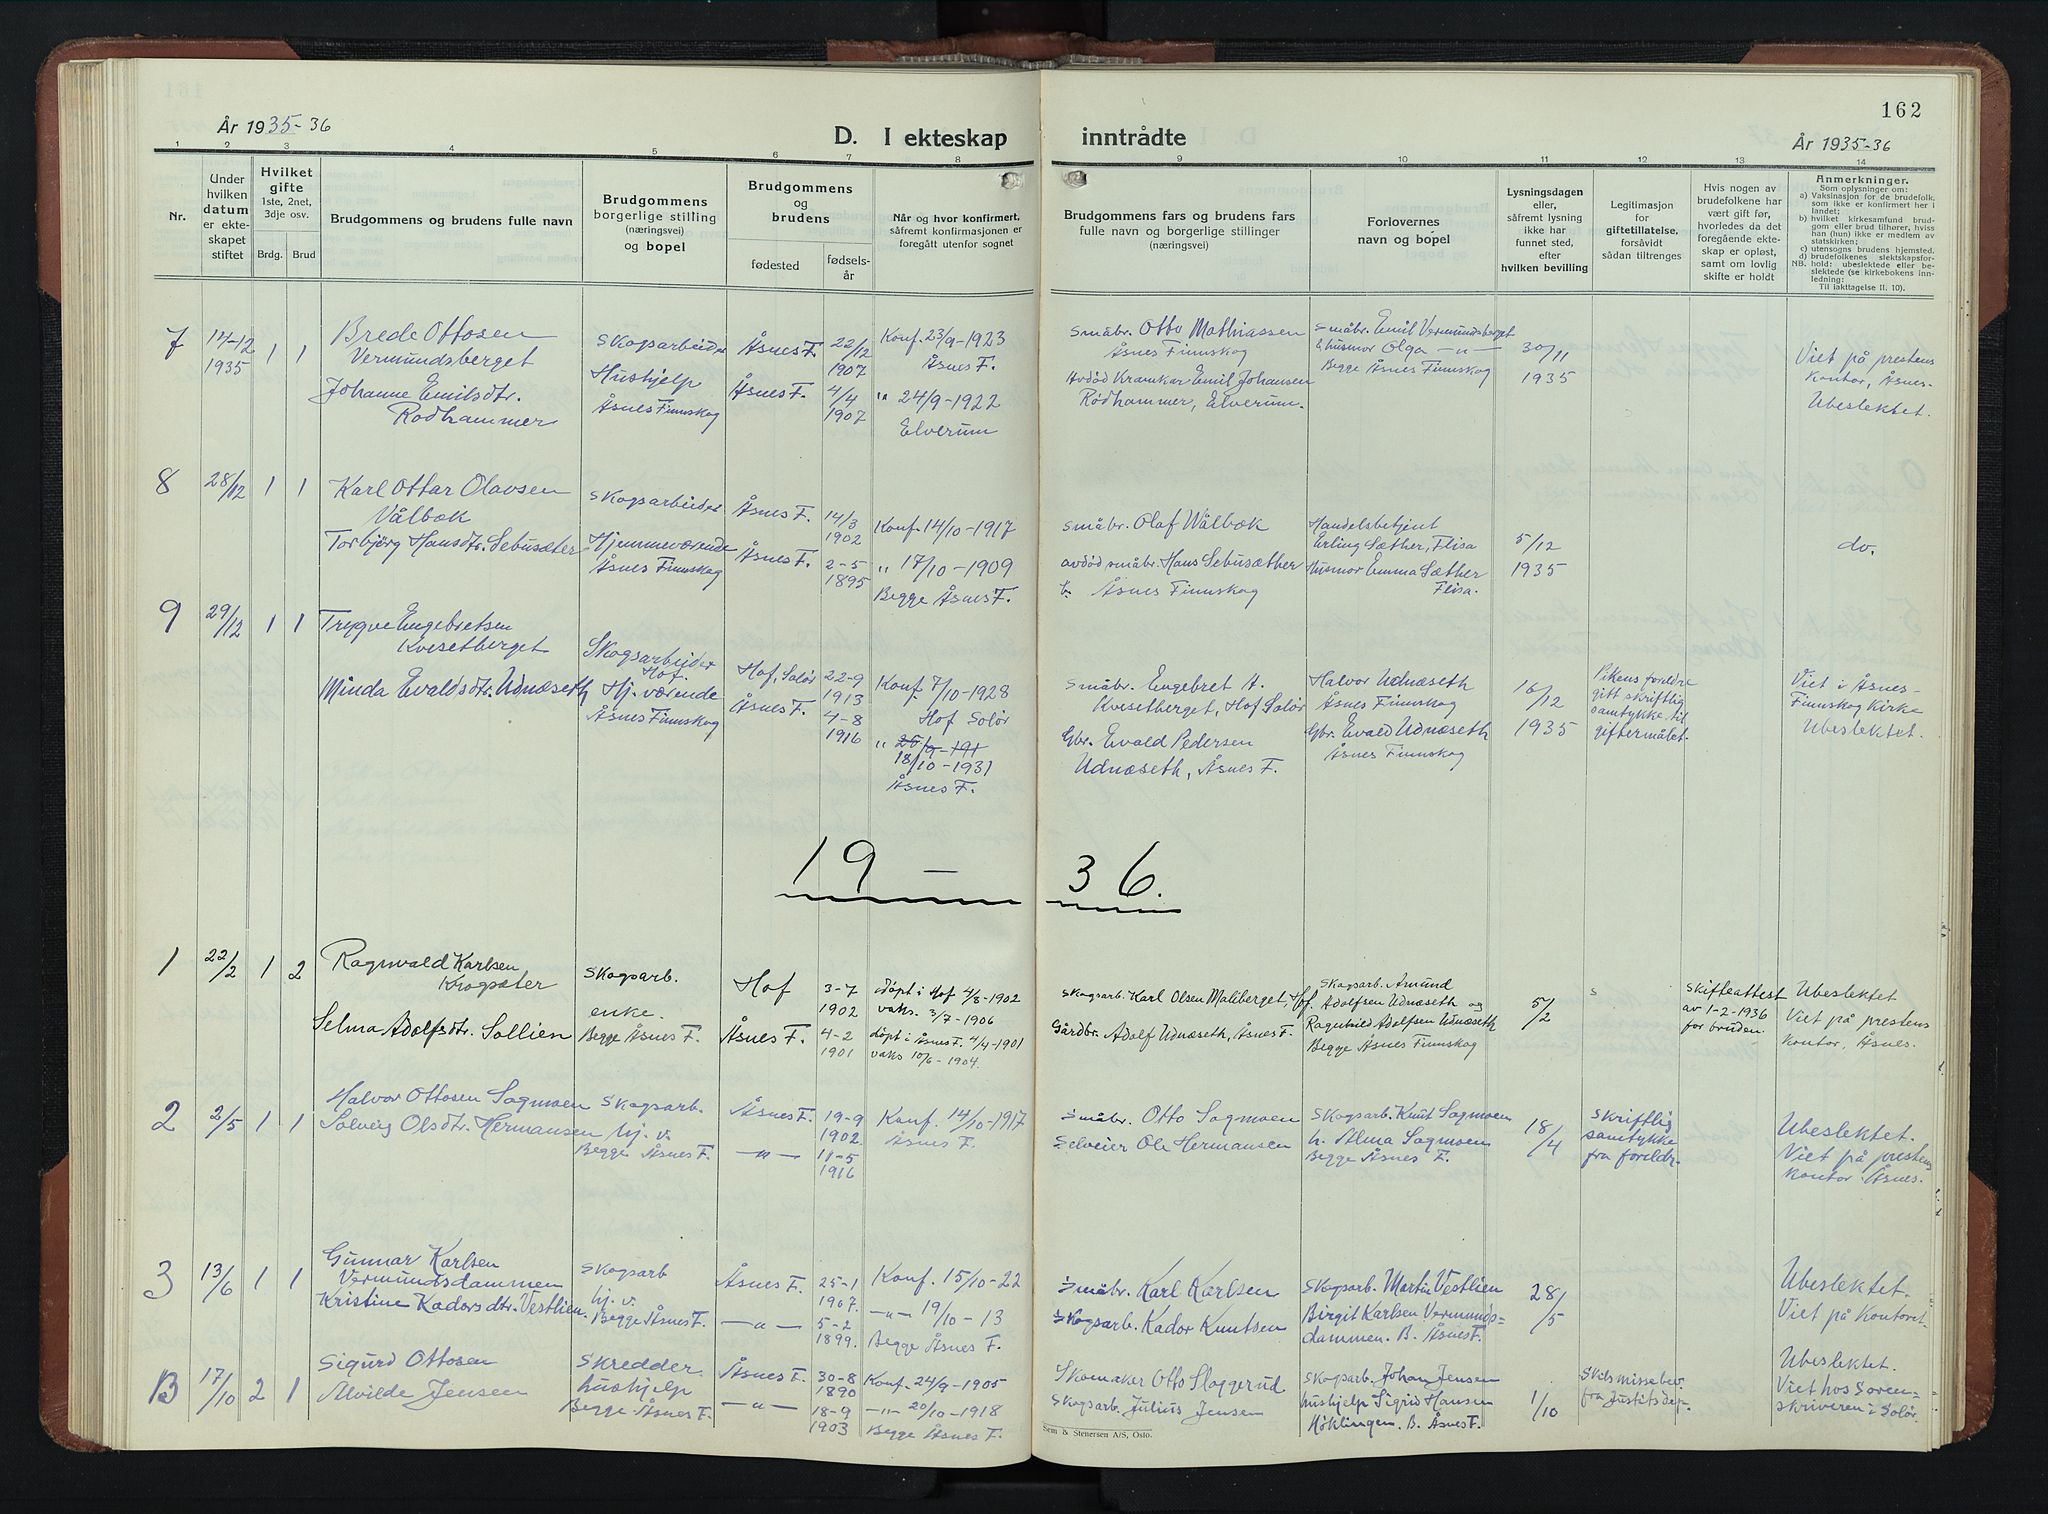 162
År 1935-36
D. I ekteskap inntrådte
År 1935-36
1 2 3 4 5 6 7 8 9 10 11 12 13 14
Nr.
Under hvilken datum er ekteskapet stiftet
Hvilket gifte 1ste, 2net, 3dje osv.
Brdg. Brud
Brudgommens og brudens fulle navn
Brudgommens borgerlige stilling (næringsvei) og bopel
Brudgommens og brudens
fødested
fødselsår
Når og hvor konfirmert, såfremt konfirmasjonen er foregått utenfor sognet
Brudgommens fars og brudens fars fulle navn og borgerlige stillinger (næringsvei)
Forlovernes navn og bopel
Lysningsdagen eller, såfremt lysning ikke har funnet sted, efter hvilken bevilling
Legitimasjon for giftetillatelse, forsåvidt sådan tiltrenges
Hvis nogen av brudefolkene har vært gift før, hvorledes da det foregående ekteskap er opløst, samt om lovlig skifte er holdt
Anmerkninger.
Som oplysninger om:
a) Vaksinasjon for de brudefolk, som ikke er konfirmert her i landet;
b) hvilket kirkesamfund brudgom eller brud tilhører, hviss han (hun) ikke er medlem av statskirken;
c) utensogns brudens hjemsted.
d) brudefolkenes slektskapsforhold: ubeslektede eller beslektede (se kirkebokens innledning:
NB.
Til iakttagelse II. 10).
7 14-12 1935 1 1
Brede Ottosen
Vermundsberget
Johanne Emilsdtr.
Rødhammer
Skogsarbeider
Hushjelp
Åsnes Finnskog
Åsnes F. 22/12 1907
Åsnes F. 4/4 1907
Konf. 23/9-1923
Åsnes F.
" 24/9-1922
Elverum
Småbr. Otto Mathiassen
Åsnes Finnskog
Avdød Kramkar Emil Johansen
Rødhammer, Elverum.
Småbr. Emil Vermundsberget
husmor Olga -"-
Begge Åsnes Finnskog
30/11
1935
Viet på prestens
kontor, Åsnes.
Ubeslektet.
8 28/12 1 1
Karl Ottar Olavsen
Vålbæk
Torbjørg Hansdtr. Sebusæter
Skogsarbeider
Hjemmeværende
Åsnes Finnskog
Åsnes F. 14/3 1902
Åsnes F. 2-5 1895
Konf. 14/10-1917
" 17/10-1909
Begge Åsnes F.
Småbr. Olaf Wålbæk
avdød småbr. Hans Sebusæther
b. Åsnes Finnskog
Handelsbetjent
Erling Sæther, Flisa
Husmor Emma Sæther
Flisa.
5/12
1935
do.
9 29/12 1 1
Trygve Engebretsen
Kvesetberget
Minda Evaldsdtr. Udnæseth
Skogsarbeider
Hof.
Hj. værende
Åsnes Finnskog
Hof, Solør 22-9 1913
Åsnes F. 4-8 1916
Konf. 7/10-1928
Hof Solør
" 26/9-191
18/10-1931
Åsnes F.
Småbr. Engebret H.
Kvesetberget, Hof Solør
Gbr. Evald Pedersen
Udnæseth, Åsnes F.
Halvor Udnæseth
Åsnes Finnskog
Gbr. Evald Udnæseth
Åsnes Finnskog
16/12
1935
Pikens foreldre
gitt skriftlig
samtykke til
giftermålet.
Viet i Åsnes-
Finnskog Kirke
Ubeslektet.
19 - 36.
1 22/2 1 2
Ragnvald Karlsen
Krogsæter
Selma Adolfsdtr. Sollien
Skogsarb.
enke.
Begge Åsnes F.
Hof 3-7 1902
Åsnes F. 4-2 1901
døpt i Hof 4/8-1902
vaks. 3/7-1906
døpt i Åsnes F. 4/4-1901
vaks 10/6-1904.
Skogsarb. Karl Olsen Maliberget, Hof.
Gårdbr. Adolf Udnæseth, Åsnes F.
Skogsarb. Amund
Adolfsen Udnæseth og
Ragnhild Adolfsen Udnæseth
Begge Åsnes Finnskog
5/2
s
Skifteattest
av 1-2-1936
for bruden.
Ubeslektet
Viet på prestens
kontor, Åsnes.
2 2/5 1 1
Halvor Ottosen Sagmoen
Solveig Olsdtr. Hermansen
Skogsarb.
hj. v.
Begge Åsnes F.
Åsnes F. 19-9 1902
-"- 11-5 1916
Konf. 14/10-1917
Åsnes F.
Småbr. Otto Sagmoen
Selveier Ole Hermansen
Skogsarb. Knut Sagmoen
h. Alma Sagmoen
Begge Åsnes F.
18/4
Skriftlig
samtykke
fra foreldr.
Ubeslektet.
Viet på prestens
kontor Åsnes.
3 13/6 1 1
Gunnar Karlsen
Vermundsdammen
Kristine Kadorsdtr. Vestlien.
Skogsarb
hj. v.
Begge Åsnes F.
Åsnes F. 25-1 1907.
-"- 5-2 1899.
Konf. 15/10-22
-"- 19/10-13
Begge Åsnes F.
Småbr. Karl Karlsen
Skogsarb. Kador Knutsen
Skogsarb. Martin Vestlien
Birgit Karlsen Vermunds-
dammen. B. Åsnes F.
28/5
Ubeslektet.
Viet på Kontoret.
B 17/10 2 1
Sigurd Ottosen
Alvilde Jensen
Skredder
hushjelp
Begge Åsnes F.
Åsnes F. 30-8 1890
-"- 18-9 1903
Konf. 24/9-1905
-"- 20/10-1918
Begge Åsnes F.
Skomaker Otto Sloggerud
Skogsarb. Julius Jensen
Skogsarb. Johan Jensen
hushjelp Sigrid Hansen
Høklingen. B. Åsnes F.
1/10
Skilsmissebev.
fra Justitsdep.
Ubeslektet.
Viet hos Soren-
skriveren i Solør.
Sem & Stenersen A/S, Oslo.